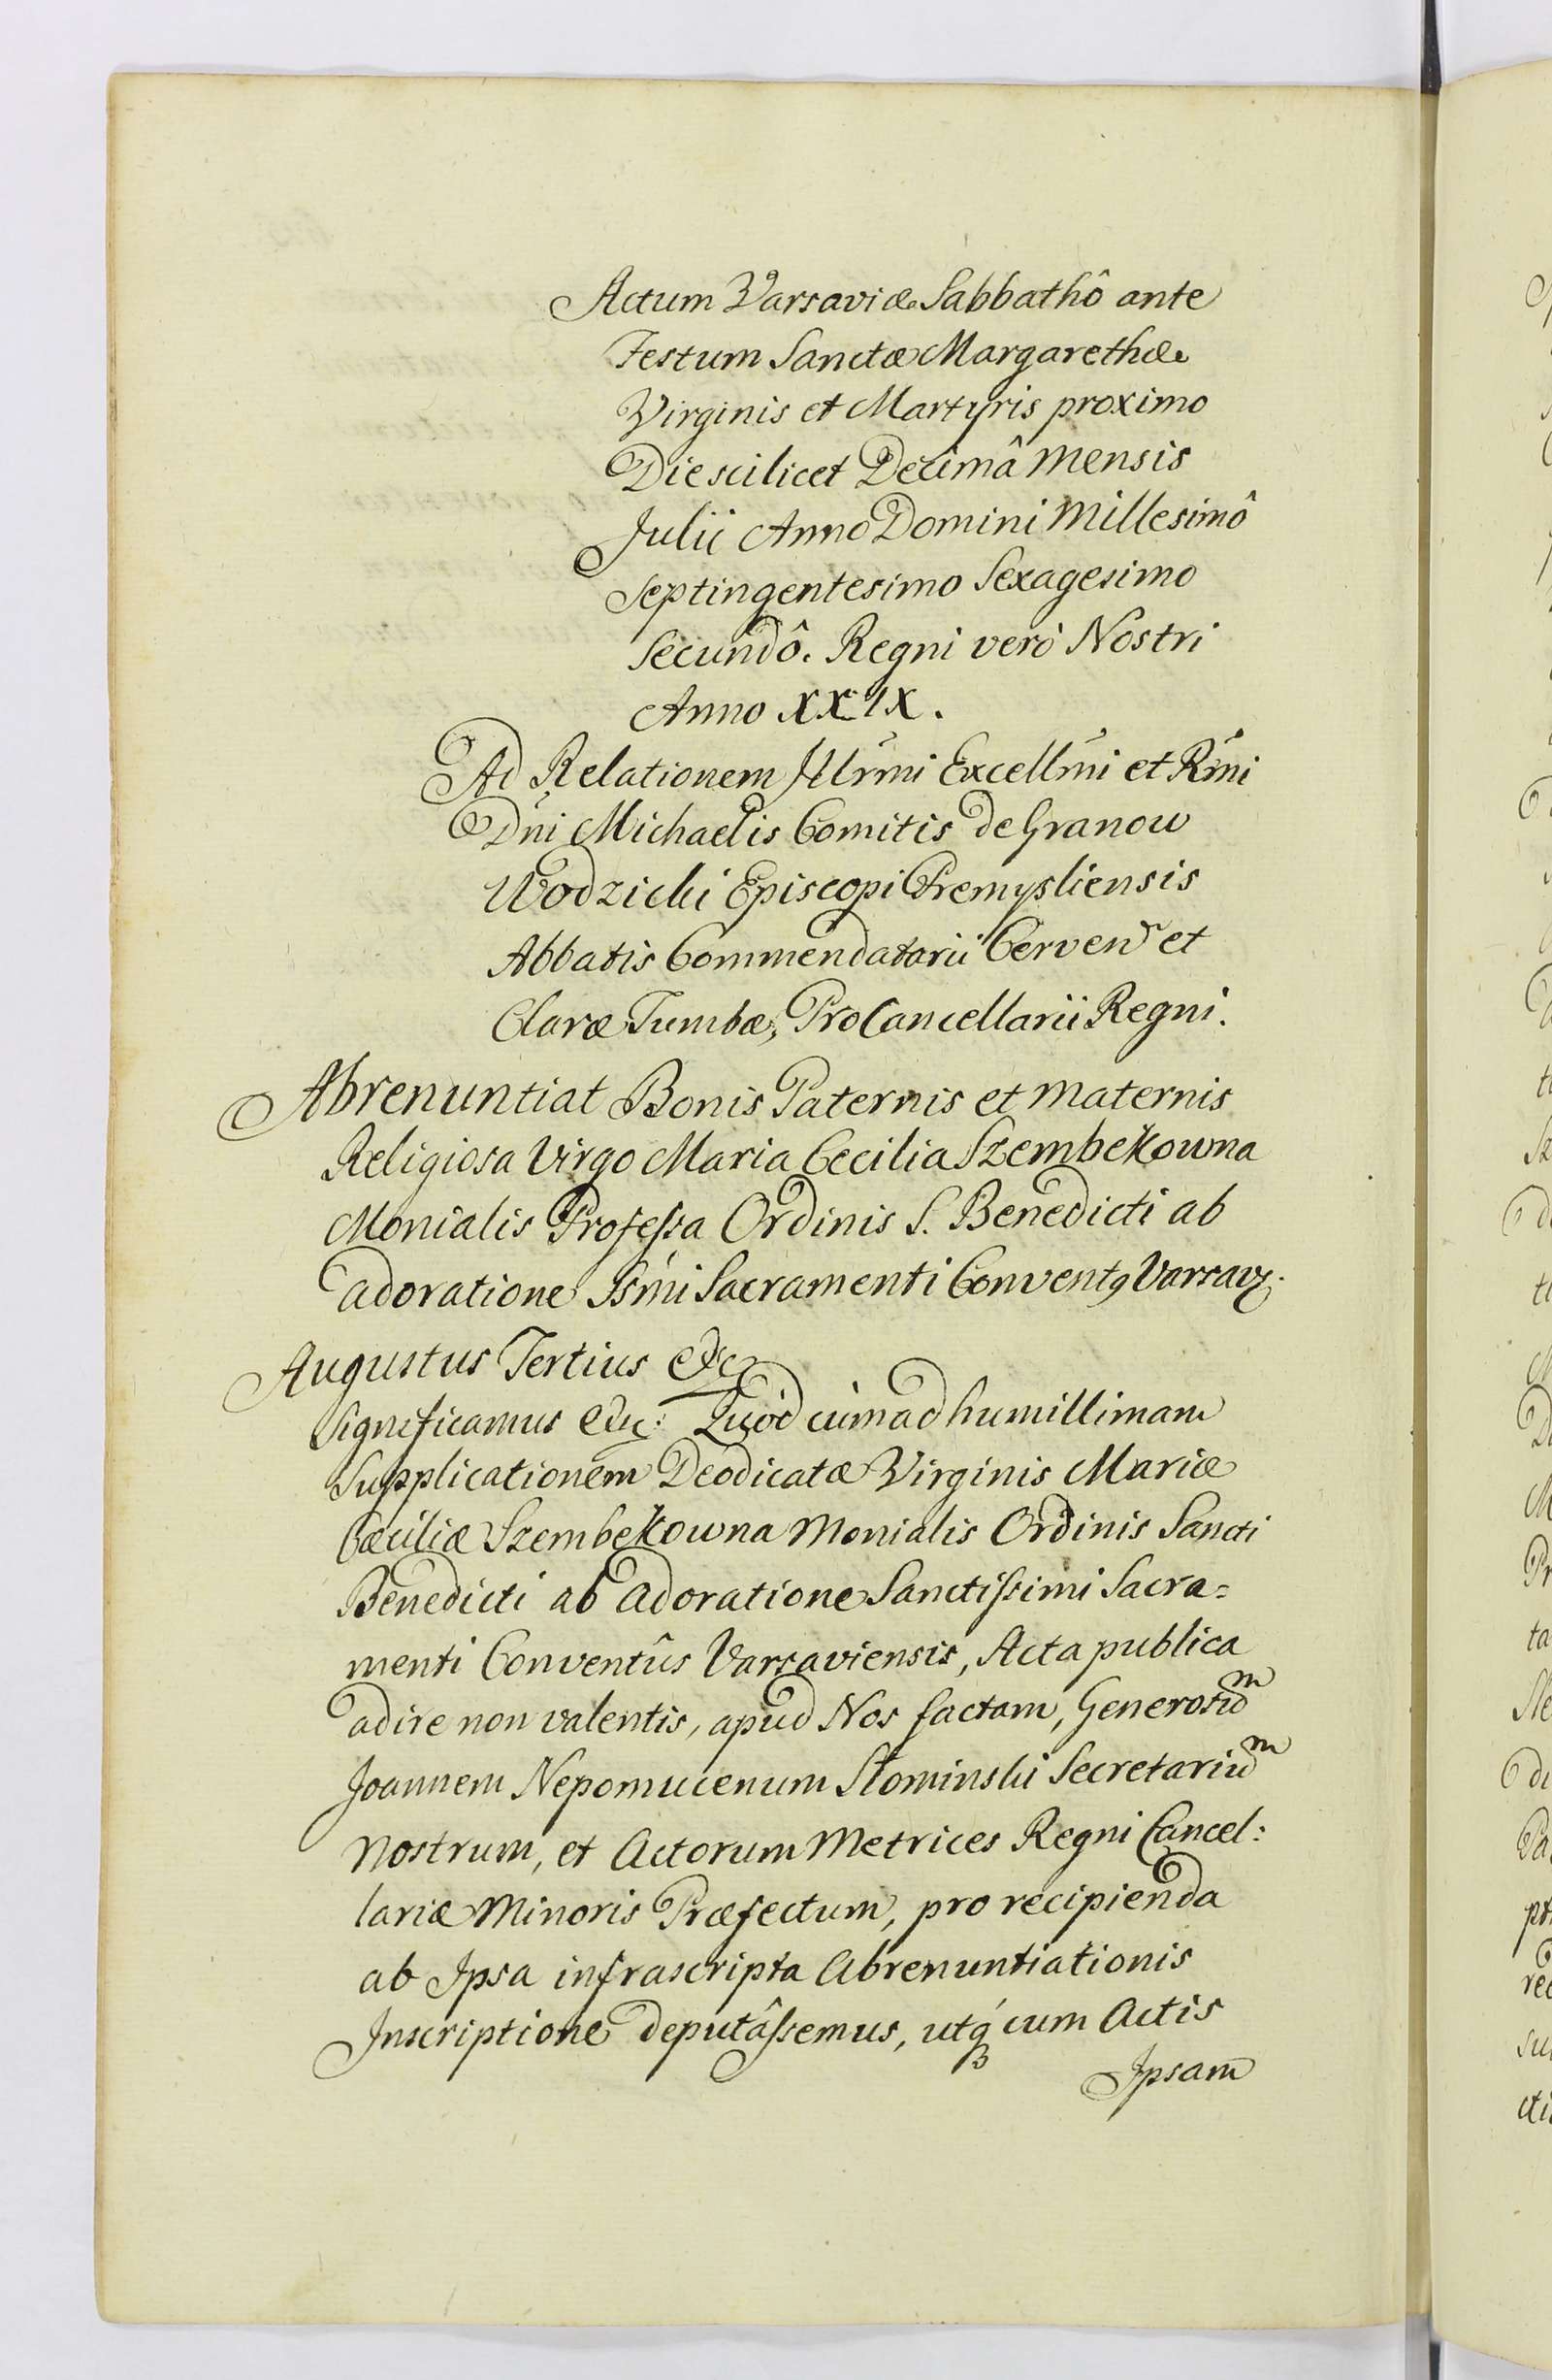 Actum Varsaviæ Sabbathô ante
Festum Sanctæ Margarethæ
Virginis et Martyris proximo
Die scilicet Decimâ Mensis
Julii Anno Domini Millesimô
Septingentesimo Sexagesimo
Secundô. Regni verò Nostri
Anno XXIX.
Ad Relationem Illrmi Excellmi et Rmi
Dni Michaelis Comitis de Granow
Wodzicki Episcopi Premysliensis
Abbatis Commendatarii Cerven et
Claræ Tumbæ, ProCancellarii Regni.
Abrenuntiat Bonis Paternis et Maternis
Religiosa Virgo Maria Cecilia Szembekowna
Monialis Professa Ordinis S. Benedicti ab
adoratione Ssmi Sacramenti Conventꝯ Varsav:
Augustus Tertius etc
Significamus etc: Quòd cùm ad humillimam
Supplicationem Deodicatæ Virginis Mariæ
Cæciliæ Szembekowna Monialis Ordinis Sancti
Benedicti ab adoratione Sanctissimi Sacra=
menti Conventûs Varsaviensis, Acta publica
adire non valentis, apud Nos factam, Generosum
Joannem Nepomucenum Słominski Secretarium
Nostrum, et Actorum Metrices Regni Cancel:
lariæ Minoris Præfectum, pro recipienda
ab Ipsa infrascripta Abrenuntiationis
Inscriptione deputâssemus, utq́ cum Actis
Ipsam